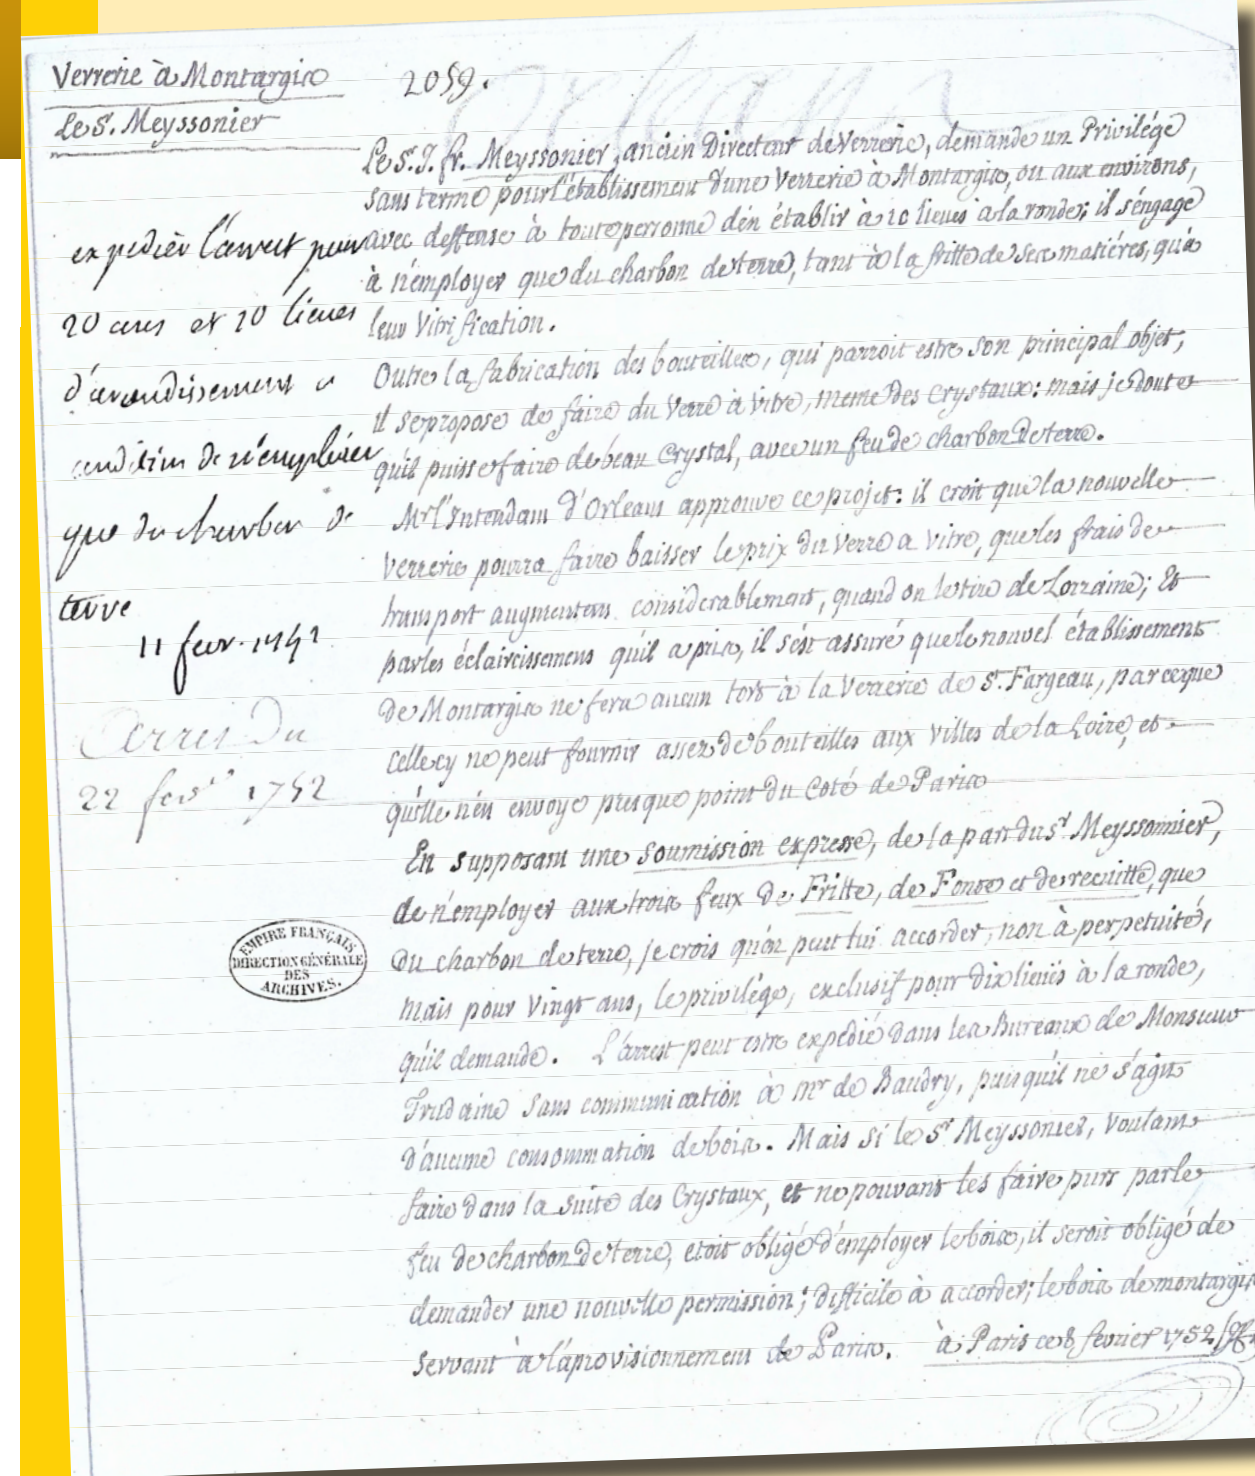 Verrerie à Montargis
Le Sr. Meyssonier
2059.
Orleans
Le S.J. fr. Meyssonier, ancien Directeur de Verrerie, demande un Privilége
sans terme pour l'établissement d'une Verrerie à Montargis, ou aux environs,
avec deffense à toute personne d'en établir à 10 lieues à la ronde; il s'engage
à n'employer que du charbon de terre, tant à la fritte de ses matiéres, qu'à
leur Vitrification.
Outre la fabrication des bouteilles, qui parroit estre son principal objet,
il se propose de faire du Verre à Vitre, meme des Crystaux: mais je doute
qu'il puisse faire de beau Crystal, avec un feu de charbon de terre.
Mr l'Intendant d'Orleans approuve ce projet: il croit que la nouvelle
Verrerie pourra faire baisser le prix du Verre a Vitre, que les frais de
transport augmentent considerablement, quand on le tire de Lorraine; Et
par les éclaircissemens qu'il a pris, il s'est assuré que le nouvel établissement
de Montargis ne fera aucun tort à la Verrerie de St. Fargeau, parceque
celle cy ne peut fournir assez de bouteilles aux Villes de la Loire, et
qu'elle n'en envoye presque point du Coté de Paris
En supposant une soumission expresse, de la part du Sr Meyssonnier,
de n'employer aux trois feux de Fritte, de Fonte et de recuitte, que
du charbon de terre, je crois qu'on peut lui accorder, non à perpetuité,
mais pour Vingt ans, le privilége, exclusif pour dix lieuës à la ronde,
qu'il demande. L'arrest peut estre expedié dans les Bureaux de Monsieur
Trudaine sans communication à Mr de Baudry, puisqu'il ne s'agit
d'aucune consommation de bois. Mais si le Sr Meyssonier, Voulant
faire dans la suite des Crystaux, et ne pouvant les faire purs par le
feu de charbon de terre, etoit obligé d'employer le bois, il seroit obligé de
demander une nouvelle permission; difficile à accorder; le bois de montargis
servant à l'aprovisionnement de Paris. à Paris ce 8 fevrier 1752
expedier l'arrest pour
20 ans et 10 lieues
d'arondissement a
condition de n'emploier
que du charbon de
terre
11 fevr. 1752
Arrest Du
22 fevr 1752
EMPIRE FRANÇAIS
DIRECTION GÉNÉRALE
DES
ARCHIVES.